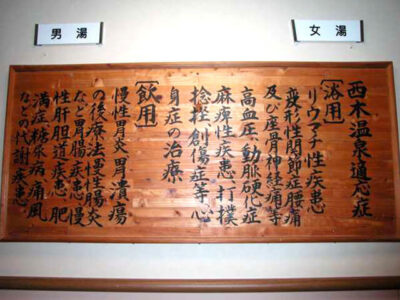 男湯
女湯
西木温泉適応症
〔浴用〕
リウマチ性疾患
変形性関節症腰痛
及び座骨神経痛等
高血圧、動脈硬化症
麻痺性疾患、打撲
捻挫、創傷症等、心
身症の治療
〔飲用〕
慢性胃炎、胃潰瘍
の後療法、慢性腸炎
など胃腸疾患、慢
性肝胆道疾患、肥
満症、糖尿病、痛風
などの代謝疾患